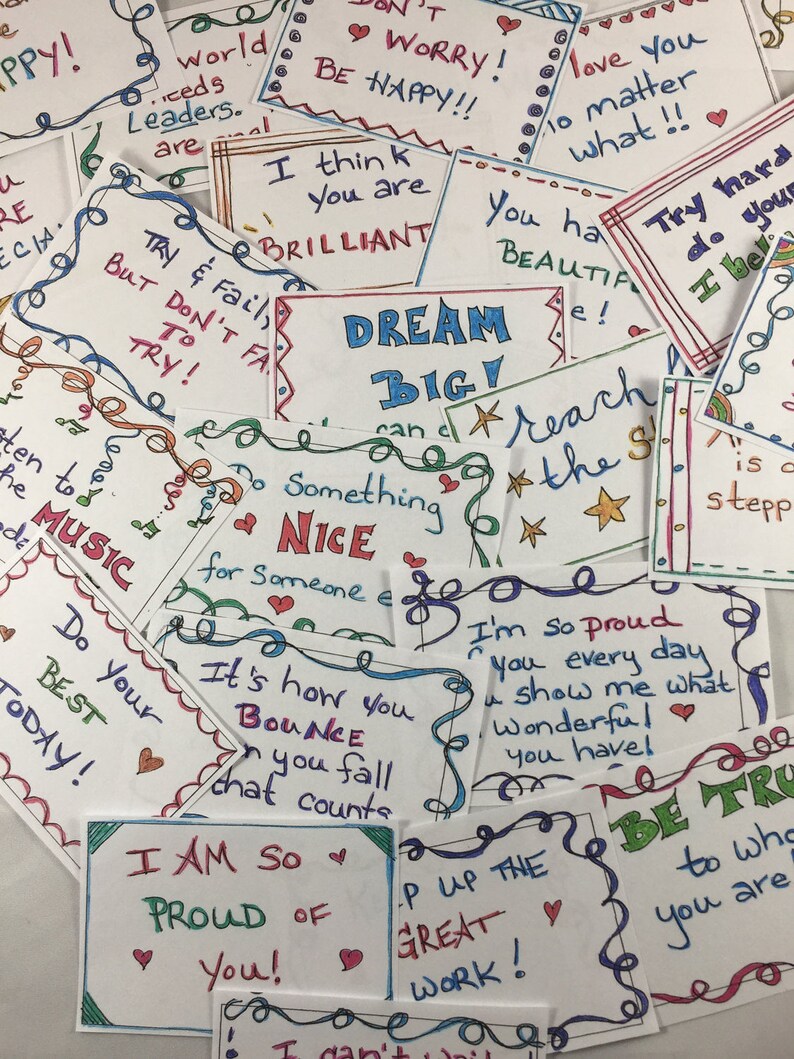 PPY!
world
needs
Leaders.
are
DON'T
WORRY!
BE HAPPY!!
love you
no matter
what!!
I think
you are
BRILLIANT
You ha
BEAUTIF
e!
Try hard
do your
I bel
RE
ECIA
TRY & Fail,
BUT DON'T FA
TO
TRY!
DREAM
BIG!
can
reach
the St
is a
stepp
sten to
he
MUSIC
Do Something
NICE
for Someone e
I'm so proud
f you every day
u show me what
wonderful
you have!
Do your
BEST
TODAY!
It's how you
BOUNCE
n you fall
that counts
BE TRU
to who
you are!
I AM SO
PROUD OF
YOU!
p UP THE
GREAT
WORK!
I can't wait